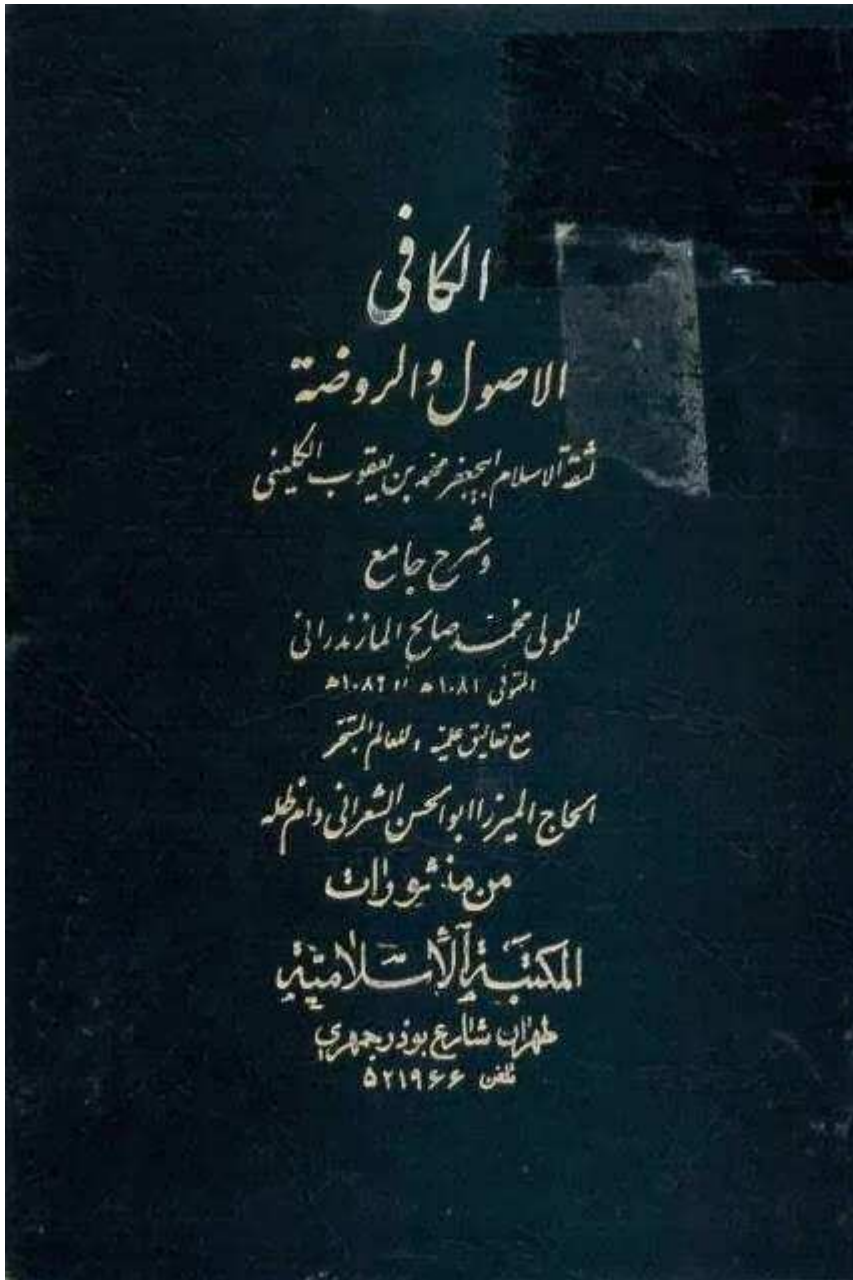 الكافي
الاصول والروضة
لثقة الاسلام ابيجعفر محمد بن يعقوب الكليني
وشرح جامع
للمولى محمد صالح المازندراني
المتوفى ١٠٨١ ه او ١٠٨٦ ه
مع تعاليق علمية ، للعالم المتبحر
الحاج الميرزا ابوالحسن الشعراني دام ظله
من منشورات
المكتبة الاسلامية
طهران شارع بوذرجمهري
تلفن ۵۲۱۹۶۶